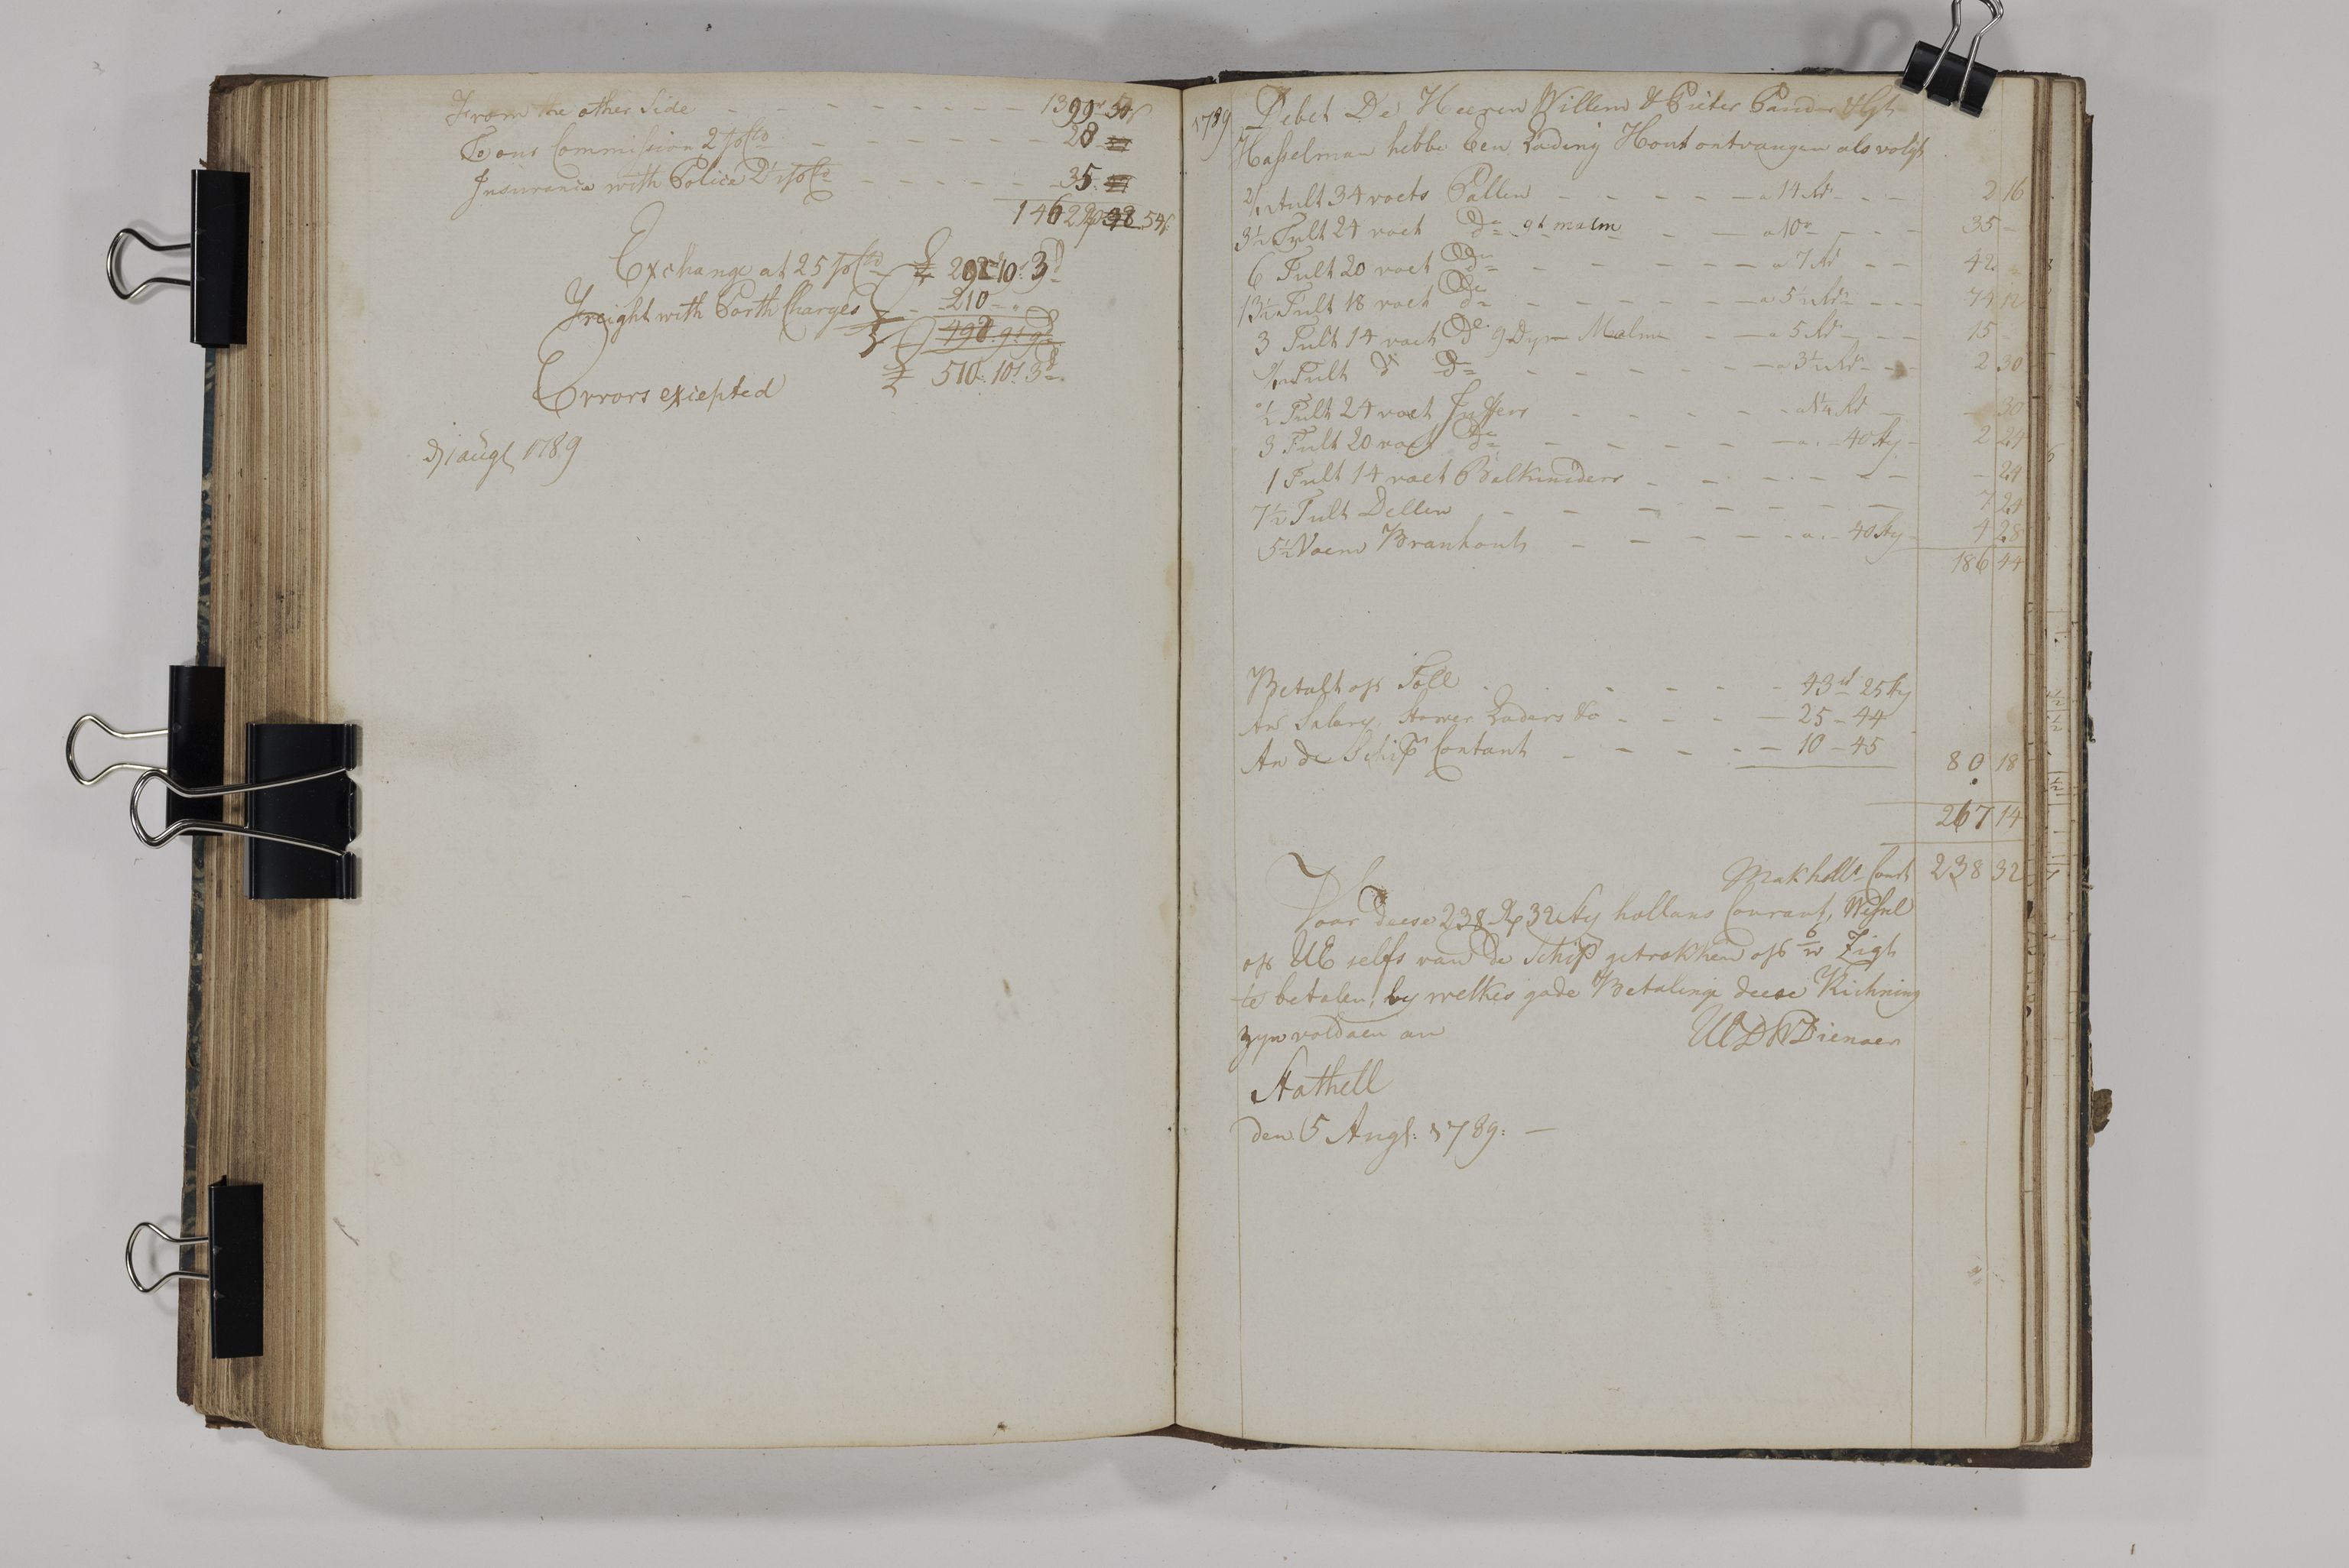 From the other Side - - - - - - - - - 1399
To ons Commission 2 p Cto - - - - - - - 28
Insurance with Police 2½ p Cto - - - - - - 35
1462
Exchange at 25 p Cto £ 292 10s 3d
Freight with Porth Charges - - 210 - "
£ 498. 9s. 9d
Errors exepted £ 510. 10s. 3d
d 1 augt 1789
1789 Debet De Heeren Willem & Pieter
Hasselman hebbe Een Lading Hout ontvangen als volgt
2/12 tult 34 voets Ballen - - - - - a 14 Rd - - - 2 16
3½ Tult 24 voet do gt malm - - a 10 - - - 35 -
6 Tult 20 voet do - - - - - - a 7 Rd - - - 42
13½ Tult 18 voet do - - - - - - a 5½ Rd - - - 74 12
3 Tult 14 voet do 9 Dym Malm - - a 5 Rd - - - 15 -
9/12 Tult do do - - - - - - a 3½ Rd - - - 2 30
½ Tult 24 voet Juffers - - - - - a 1¼ Rd - - 30
3 Tult 20 voet do - - - - - a - 40 sty - 2 24
1 Tult 14 voet Balkunders - - - - - - - 24
7½ Tult Dellen - - - - - - - - 7 24
5½ Voem Branhout - - - - - a - 40 sty - 4 28
186 44
Betalt of Toll - - - - - - 43 rd 25 sty
An Salary, Stower Laders &o - - - - 25 - 44
An de Schip Contant - - - - - 10 - 45
80 18
267 14
Mak holls Court 238 32
Voor deese 238 Rd 32 sty hollans Courant, Wessel
of UE selfs van de Schip getrokken of 6/w Zigt
te betalen, by welkes gode Betalinge deese Richning
zyn voldaen an UEDWDienaer
Stathell
den 5 Augt: 1789: -